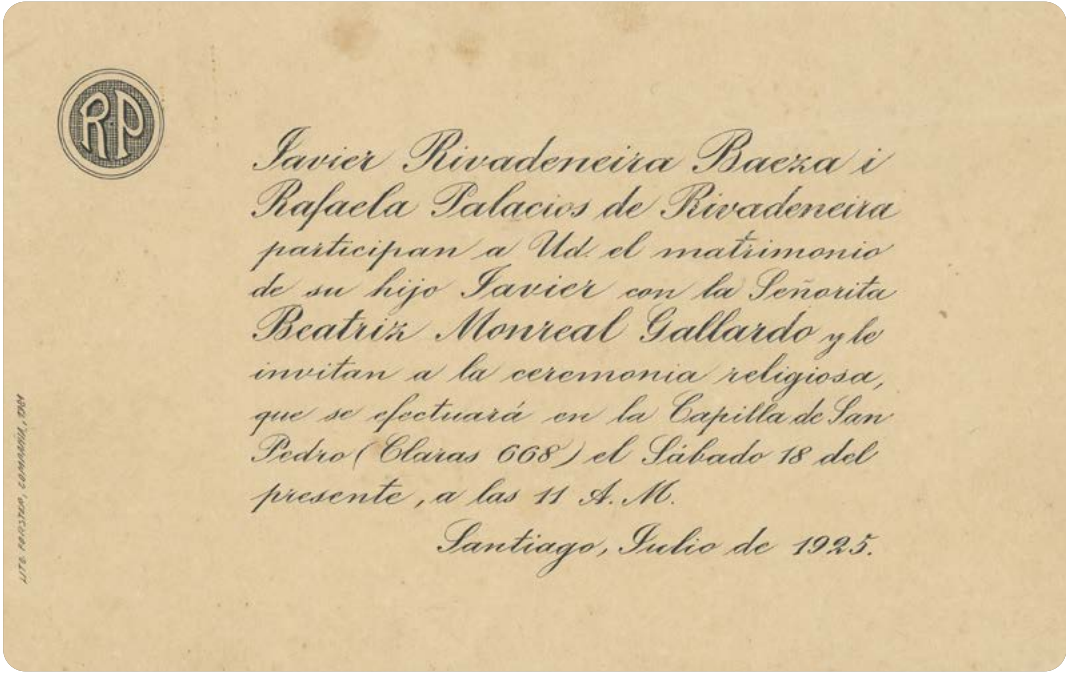 RP
Javier Rivadeneira Baeza i
Rafaela Palacios de Rivadeneira
participan a Ud. el matrimonio
de su hijo Javier con la Señorita
Beatriz Monreal Gallardo y le
invitan a la ceremonia religiosa,
que se efectuará en la Capilla de San
Pedro (Claras 668) el Sábado 18 del
presente, a las 11 A. M.
Santiago, Julio de 1925.
LITO. FORSTER, COMPAÑIA,